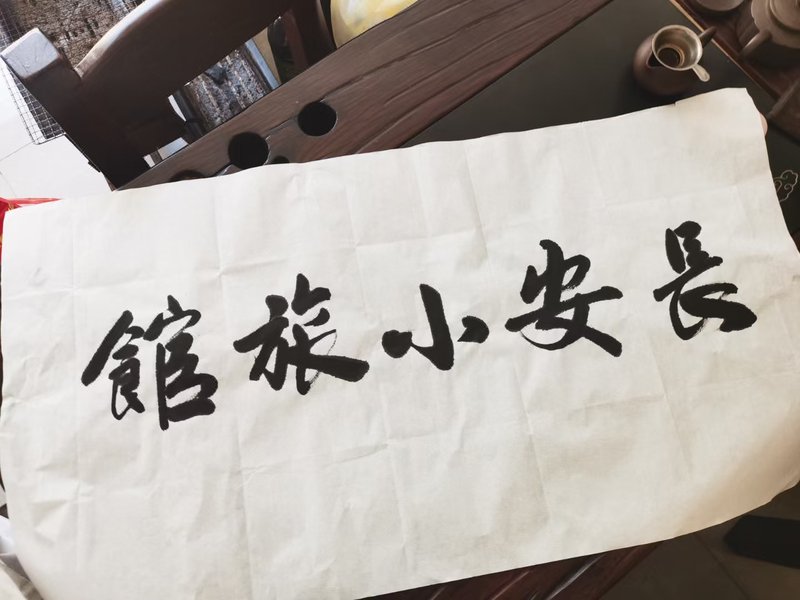 長安小旅館